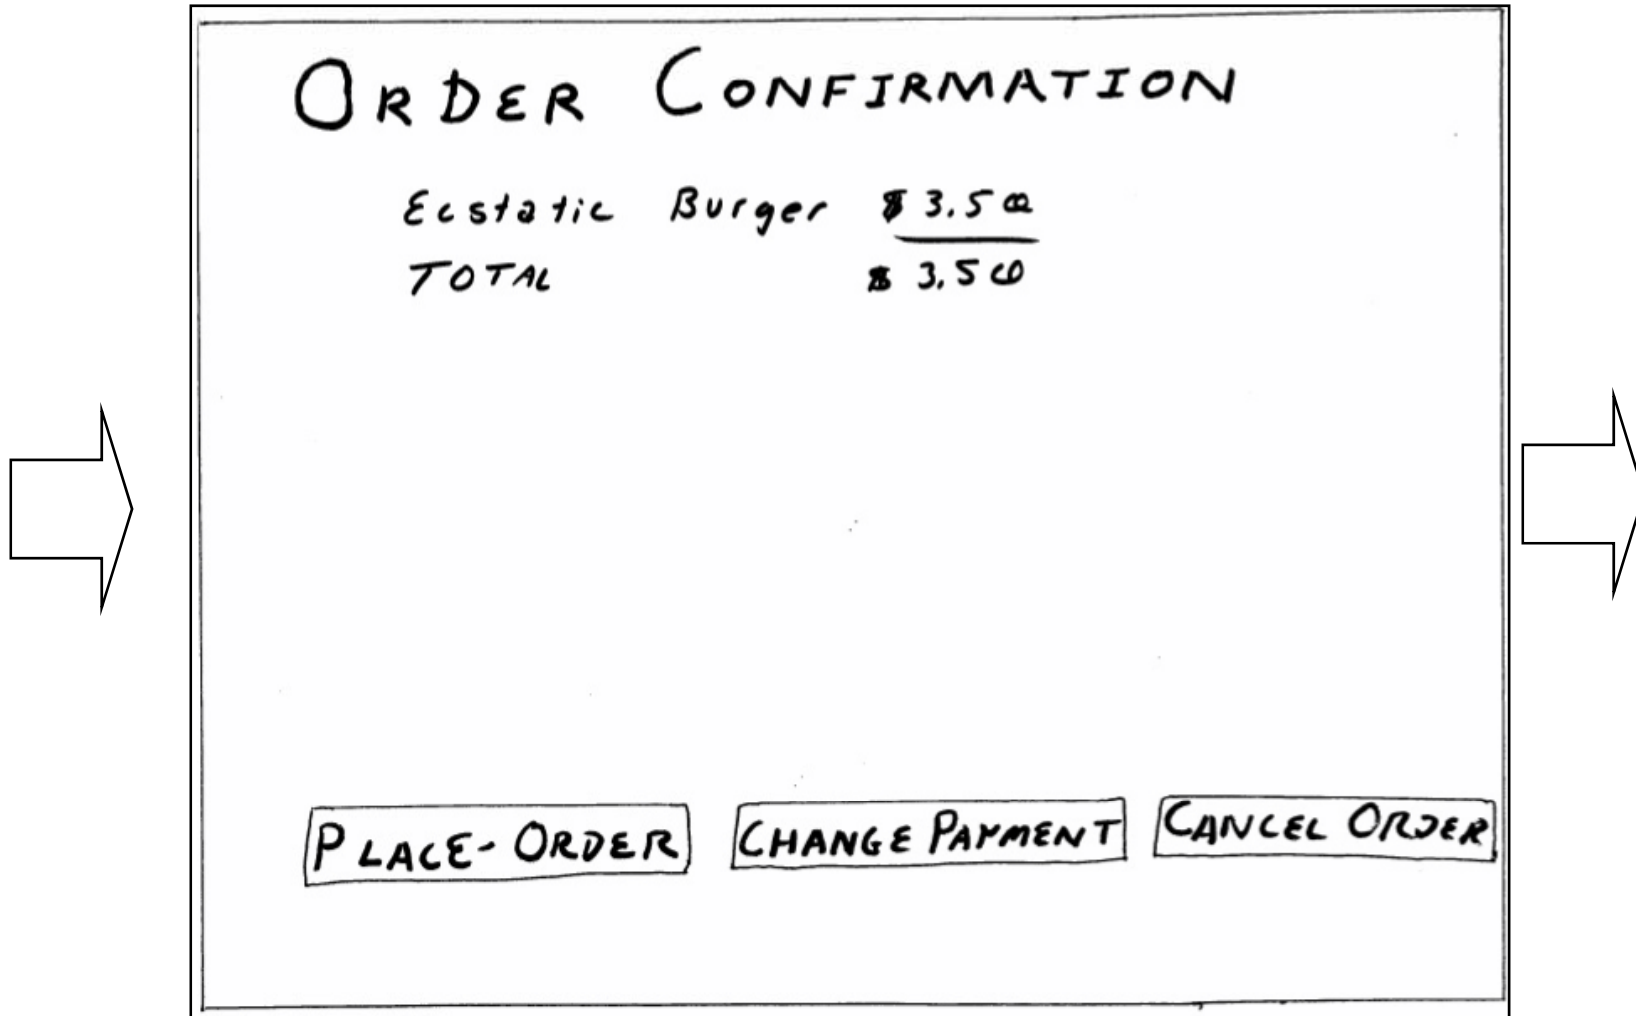 ORDER CONFIRMATION
Ecstatic Burger $ 3.50
TOTAL $ 3.50
PLACE-ORDER CHANGE PAYMENT CANCEL ORDER